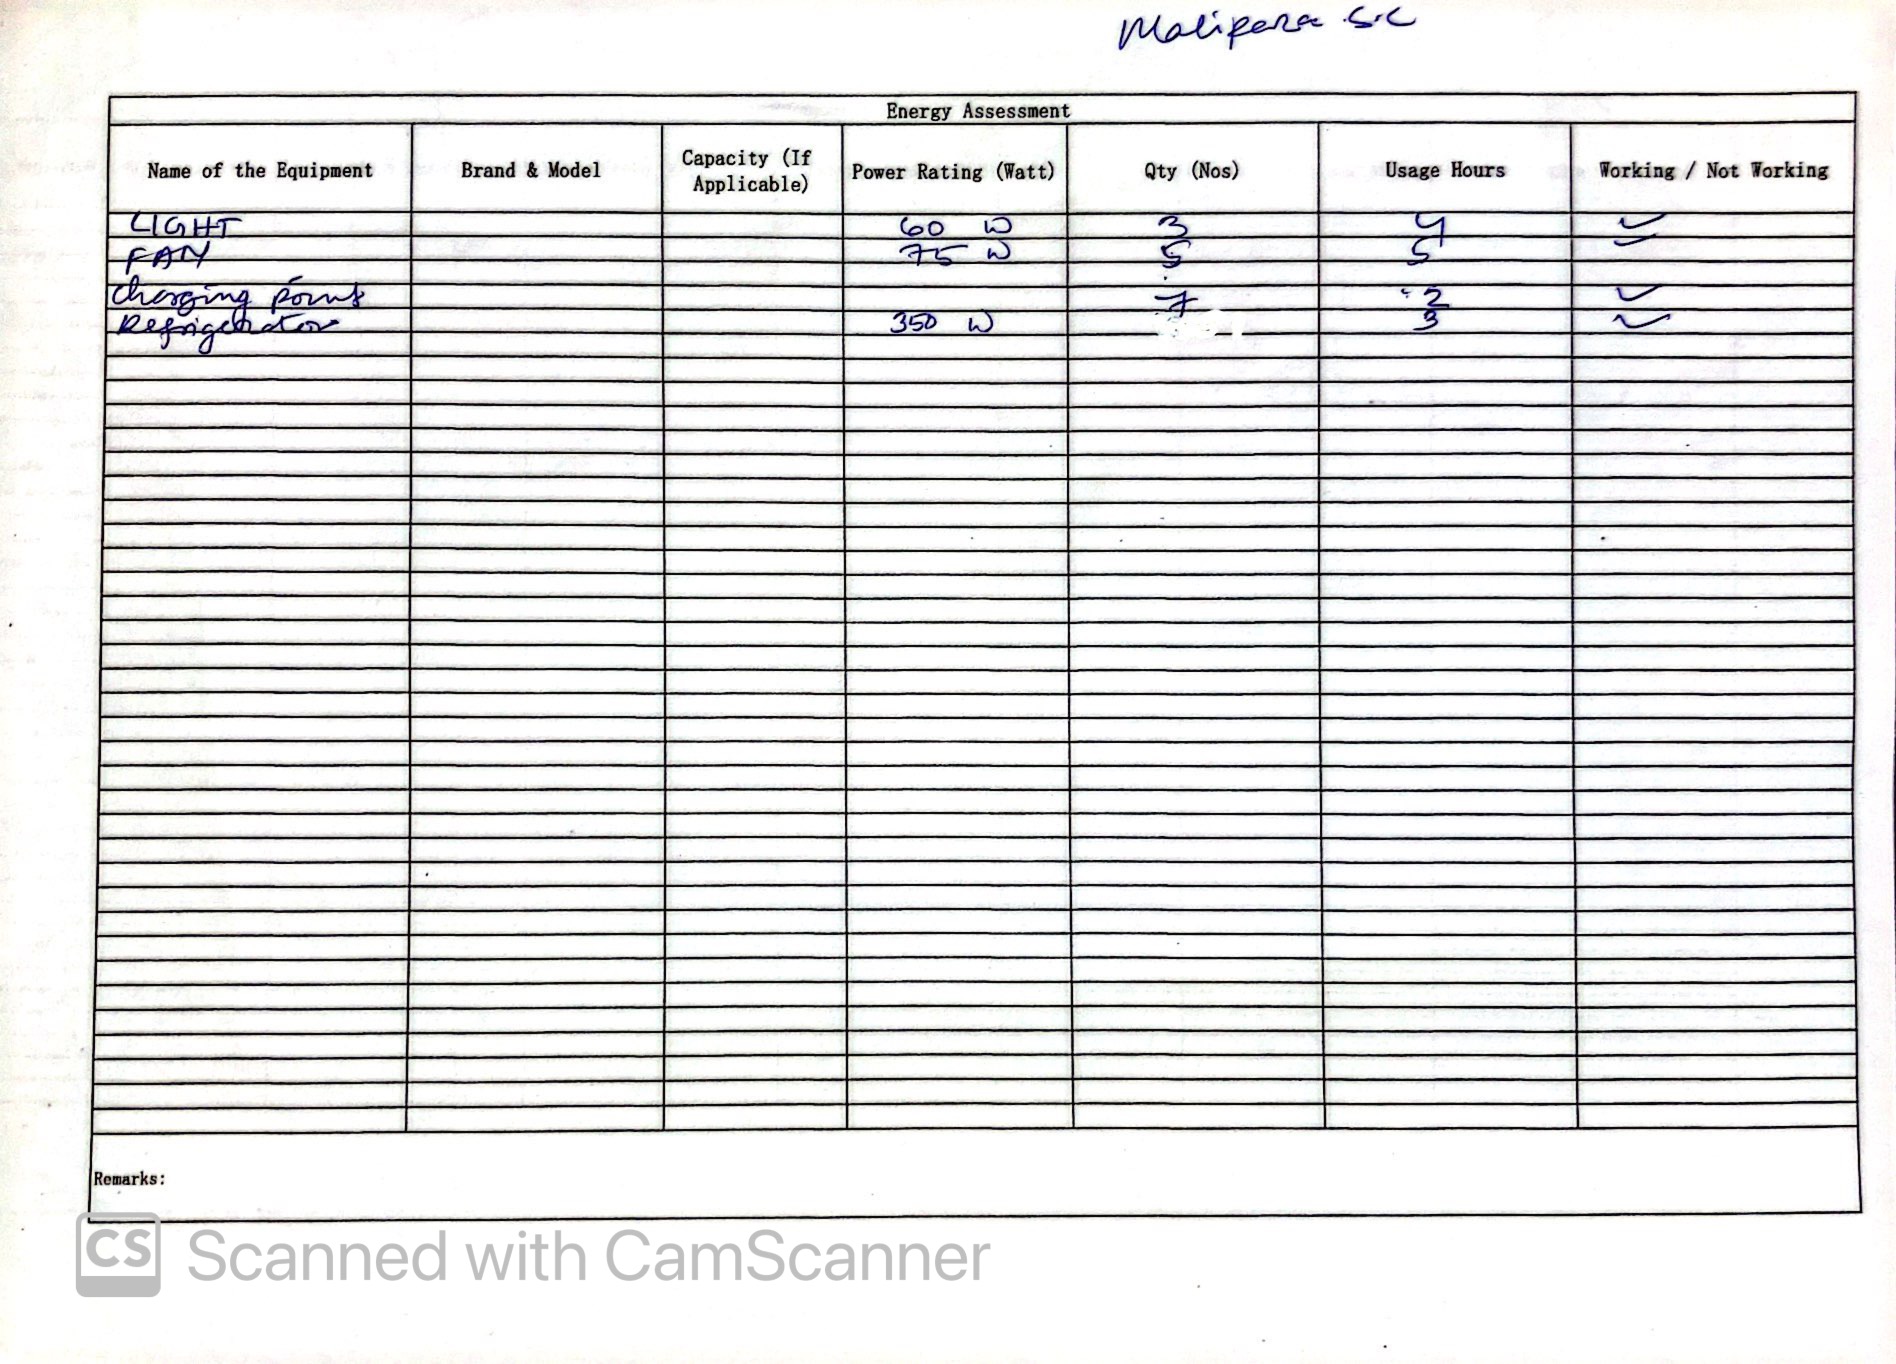 Malipara S.C
Energy Assessment
Name of the Equipment Brand & Model Capacity (If Applicable) Power Rating (Watt) Qty (Nos) Usage Hours Working / Not Working
LIGHT 60 W 3 4 ✓
FAN 75 W 5 5 ✓
Charging point 7 2 ✓
Refrigerator 350 W 3 ✓
Remarks:
CS Scanned with CamScanner